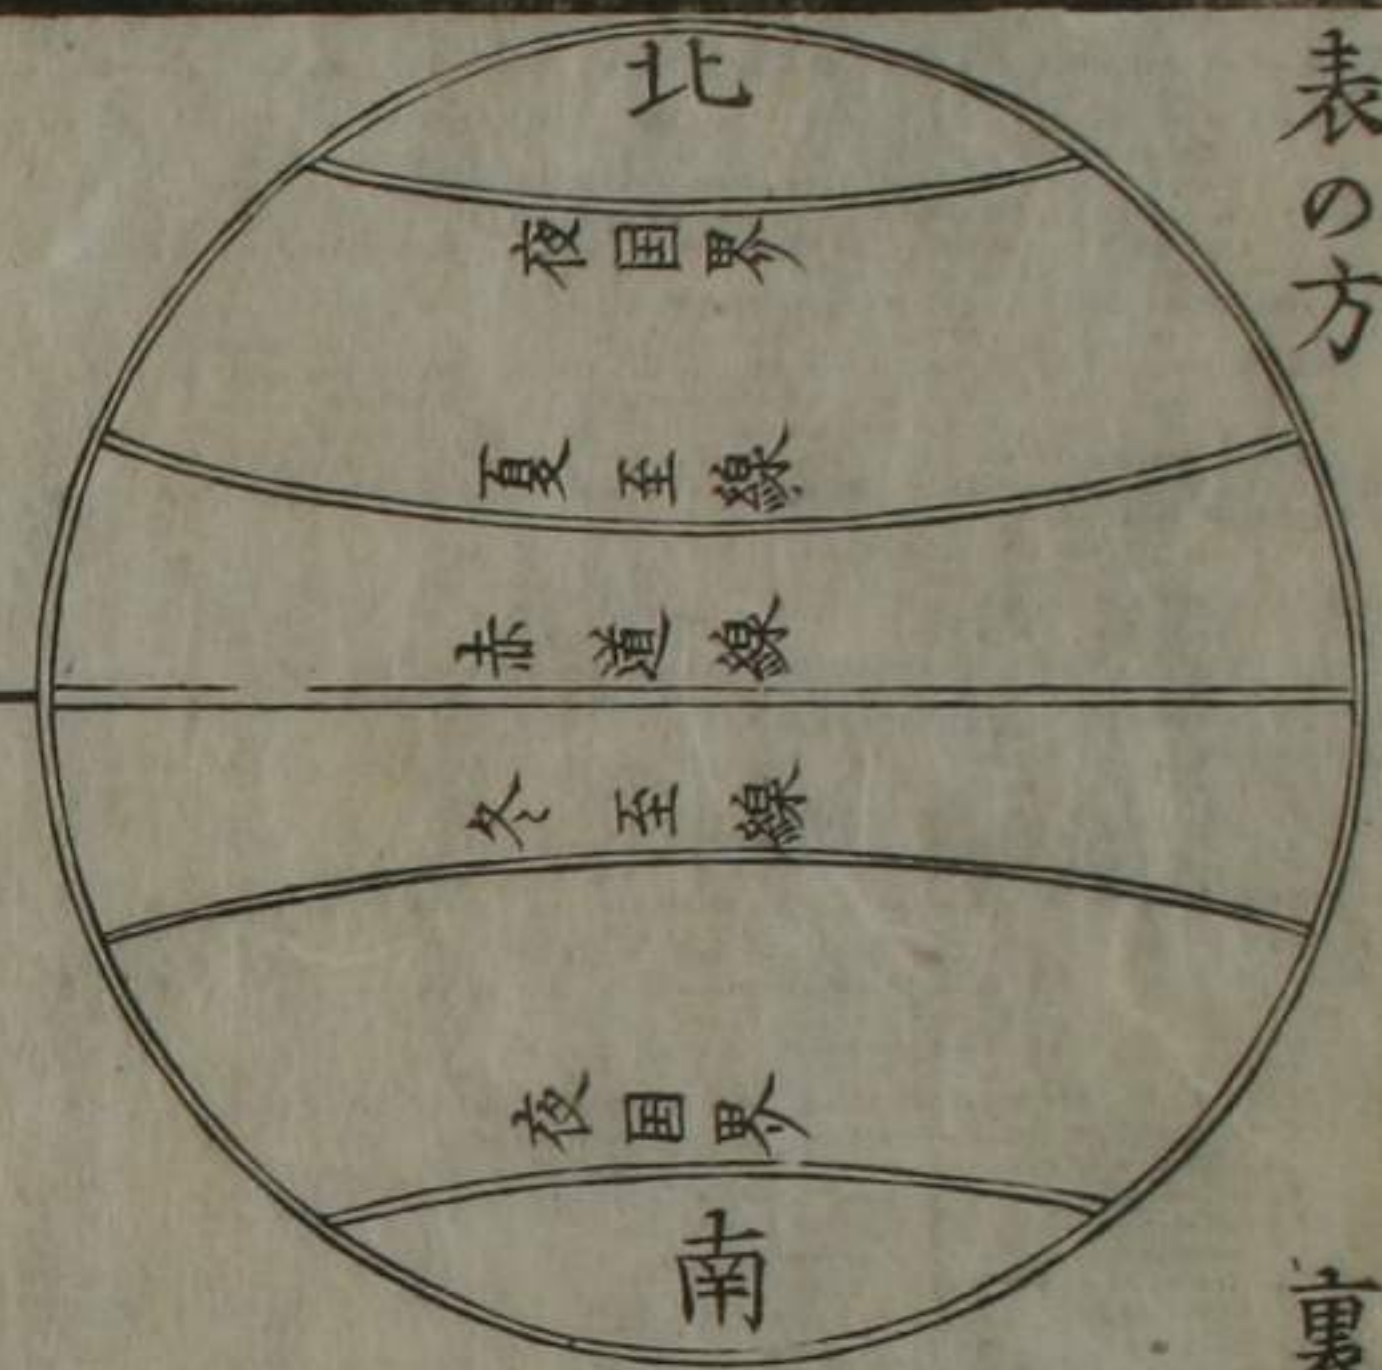 表の方
北
夜国界
夏至線
赤道線
冬至線
夜国界
南
裏